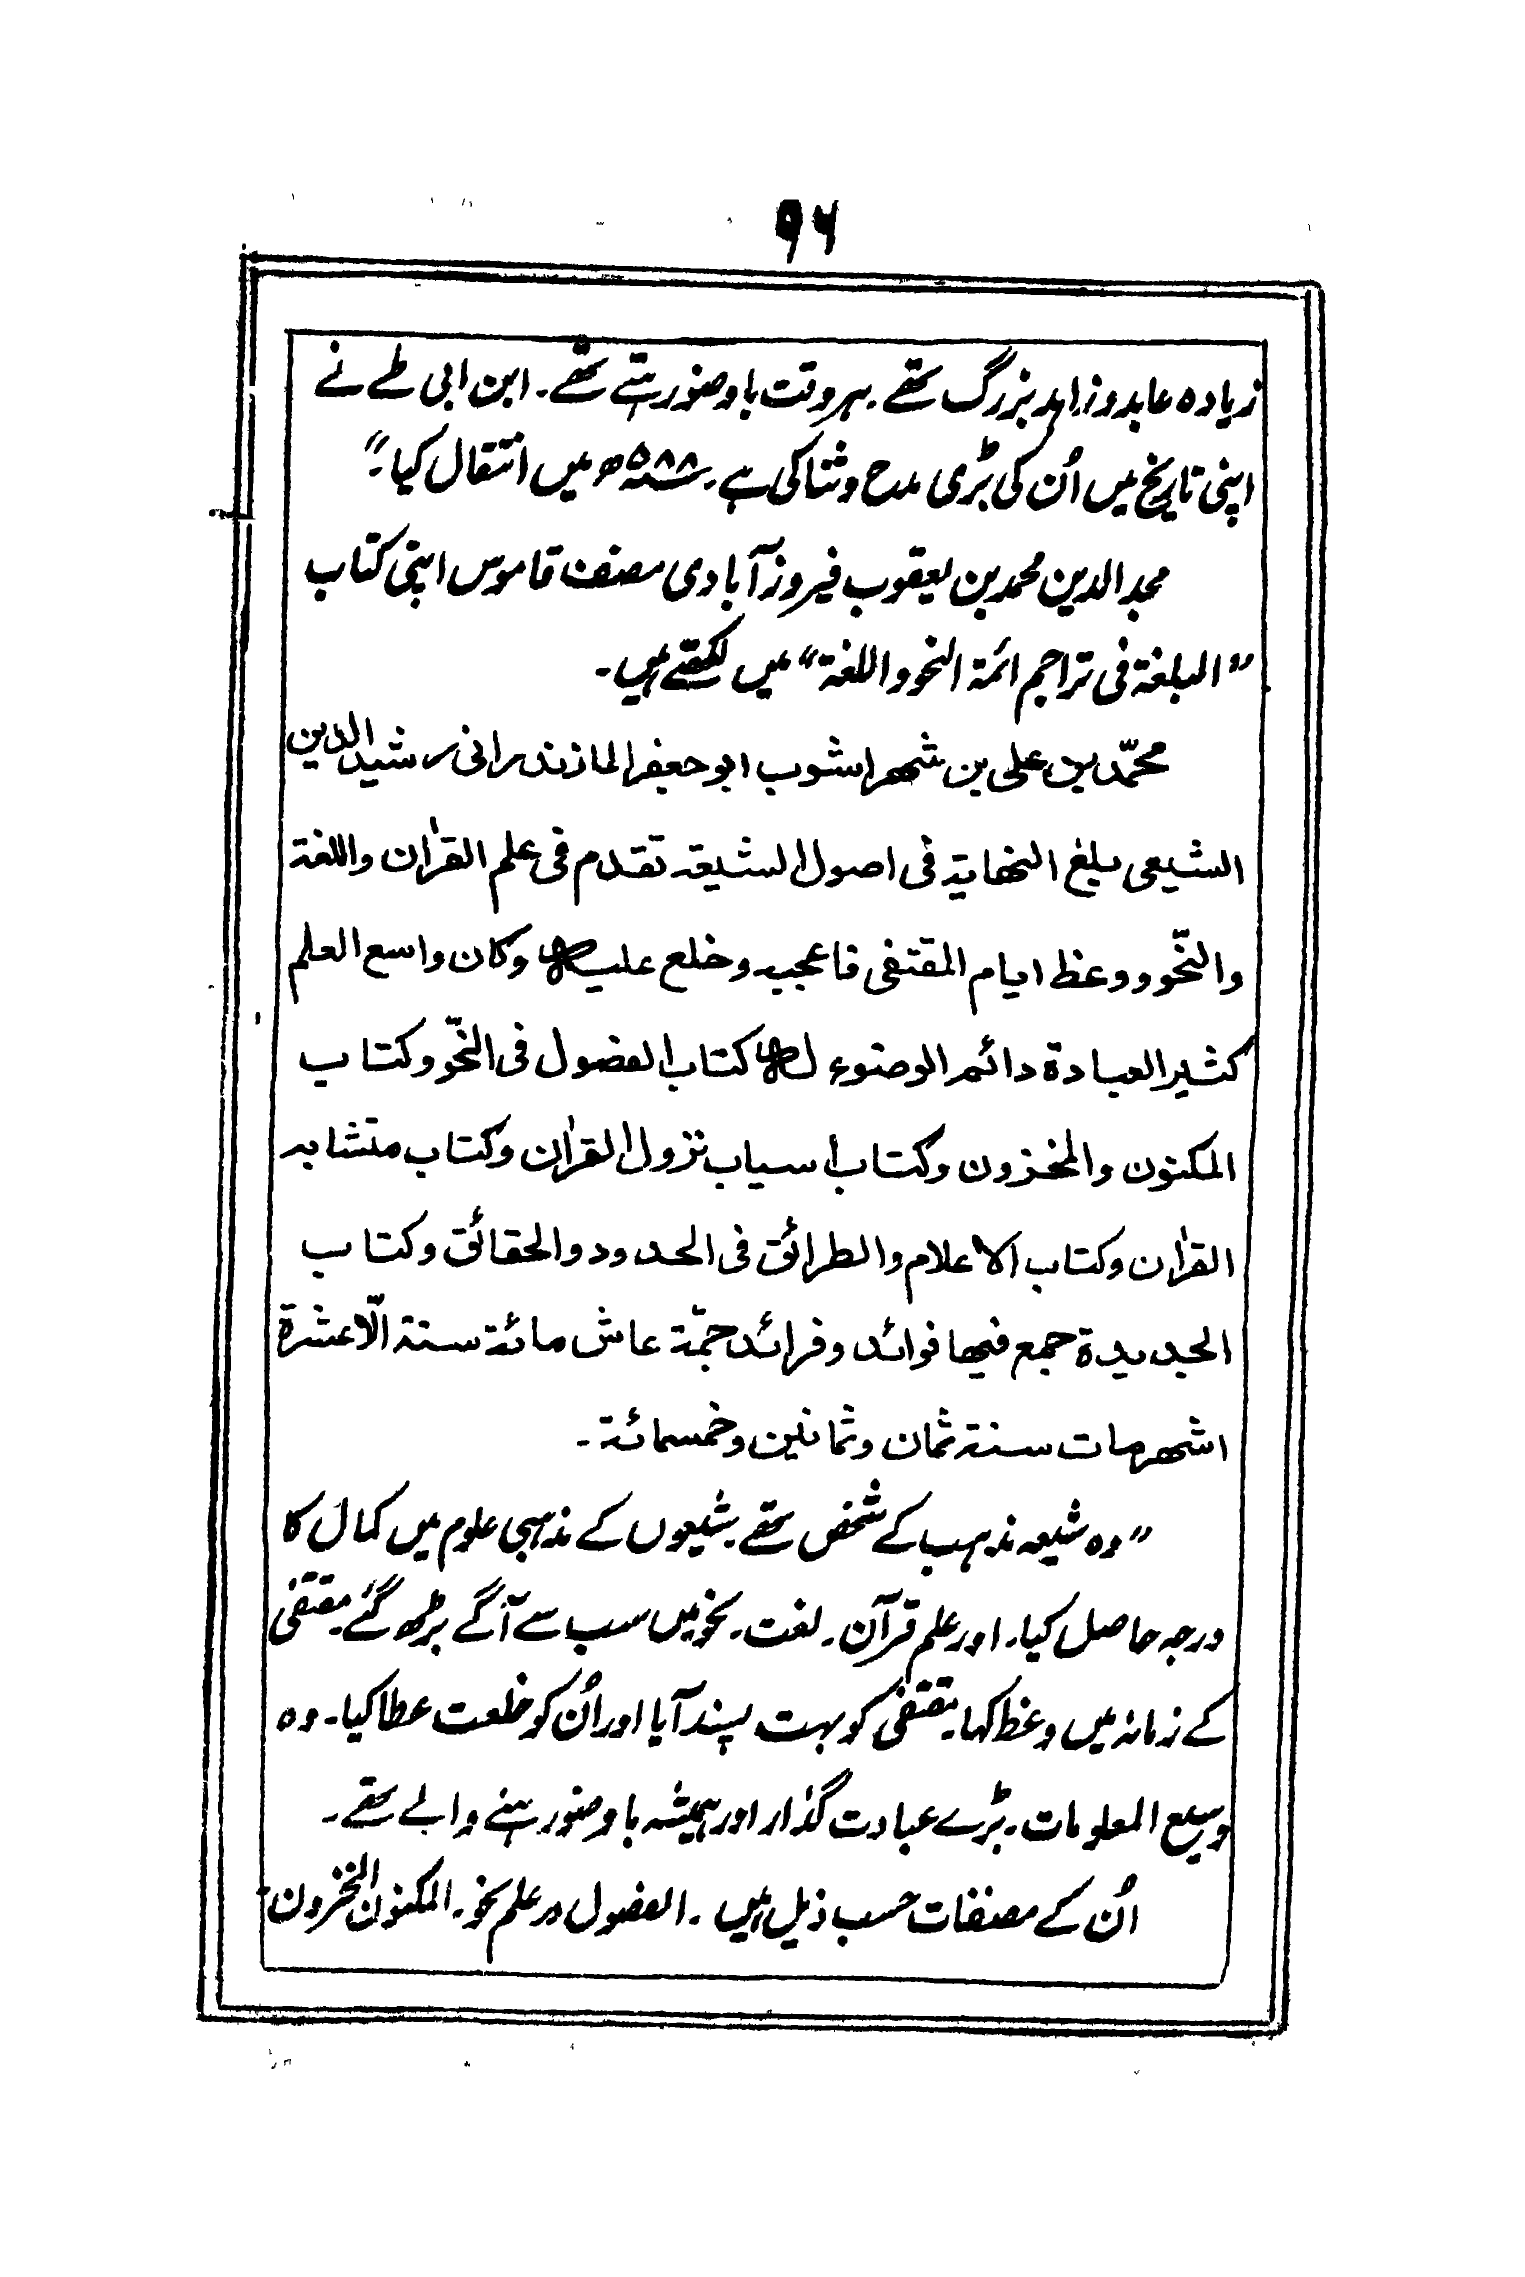 ۹۶
زیادہ عابد وزاہد بزرگ تھے۔ ہر وقت باوضو رہتے تھے۔ ابن ابی طے نے
اپنی تاریخ میں اُن کی بڑی مدح و ثنا کی ہے۔ ۵۸۸ھ میں انتقال کیا۔"
مجد الدین محمد بن یعقوب فیروزآبادی مصنف قاموس اپنی کتاب
"البلغۃ فی تراجم ائمۃ النحو واللغۃ" میں لکھتے ہیں۔
محمّد بن علی بن شھراشوب ابو جعفر المازندرانی رشید الدین
الشیعی بلغ النھایۃ فی اصول الشیعہ تقدم فی علم القرٰان واللغۃ
والنّحو ووعظ ایام المقتفی فاعجبہ وخلع علیہ وکان واسع العلم
کثیر العبادۃ دائم الوضوء لہ کتاب الفصول فی النّحو وکتاب
المکنون والمخزون وکتاب اسباب نزول القرٰان وکتاب متشابہ
القرٰان وکتاب الاعلام والطرائق فی الحدود والحقائق وکتاب
الجدیدۃ جمع فیھا فوائد وفرائد جمّۃ عاش مائۃ سنۃ الّا عشرۃ
اشھر مات سنۃ ثمان وثمانین وخمسمائۃ۔
"وہ شیعہ مذہب کے شخص تھے۔ شیعوں کے مذہبی علوم میں کمال کا
درجہ حاصل کیا۔ اور علم قرآن۔ لغت۔ نحو میں سب سے آگے بڑھ گئے۔ مقتفی
کے زمانہ میں وعظ کہا۔ مقتفی کو بہت پسند آیا اور اُن کو خلعت عطا کیا۔ وہ
وسیع المعلومات۔ بڑے عبادت گذار اور ہمیشہ باوضو رہنے والے تھے۔
اُن کے مصنفات حسب ذیل ہیں۔ الفصول در علم نحو۔ المکنون المخزون۔